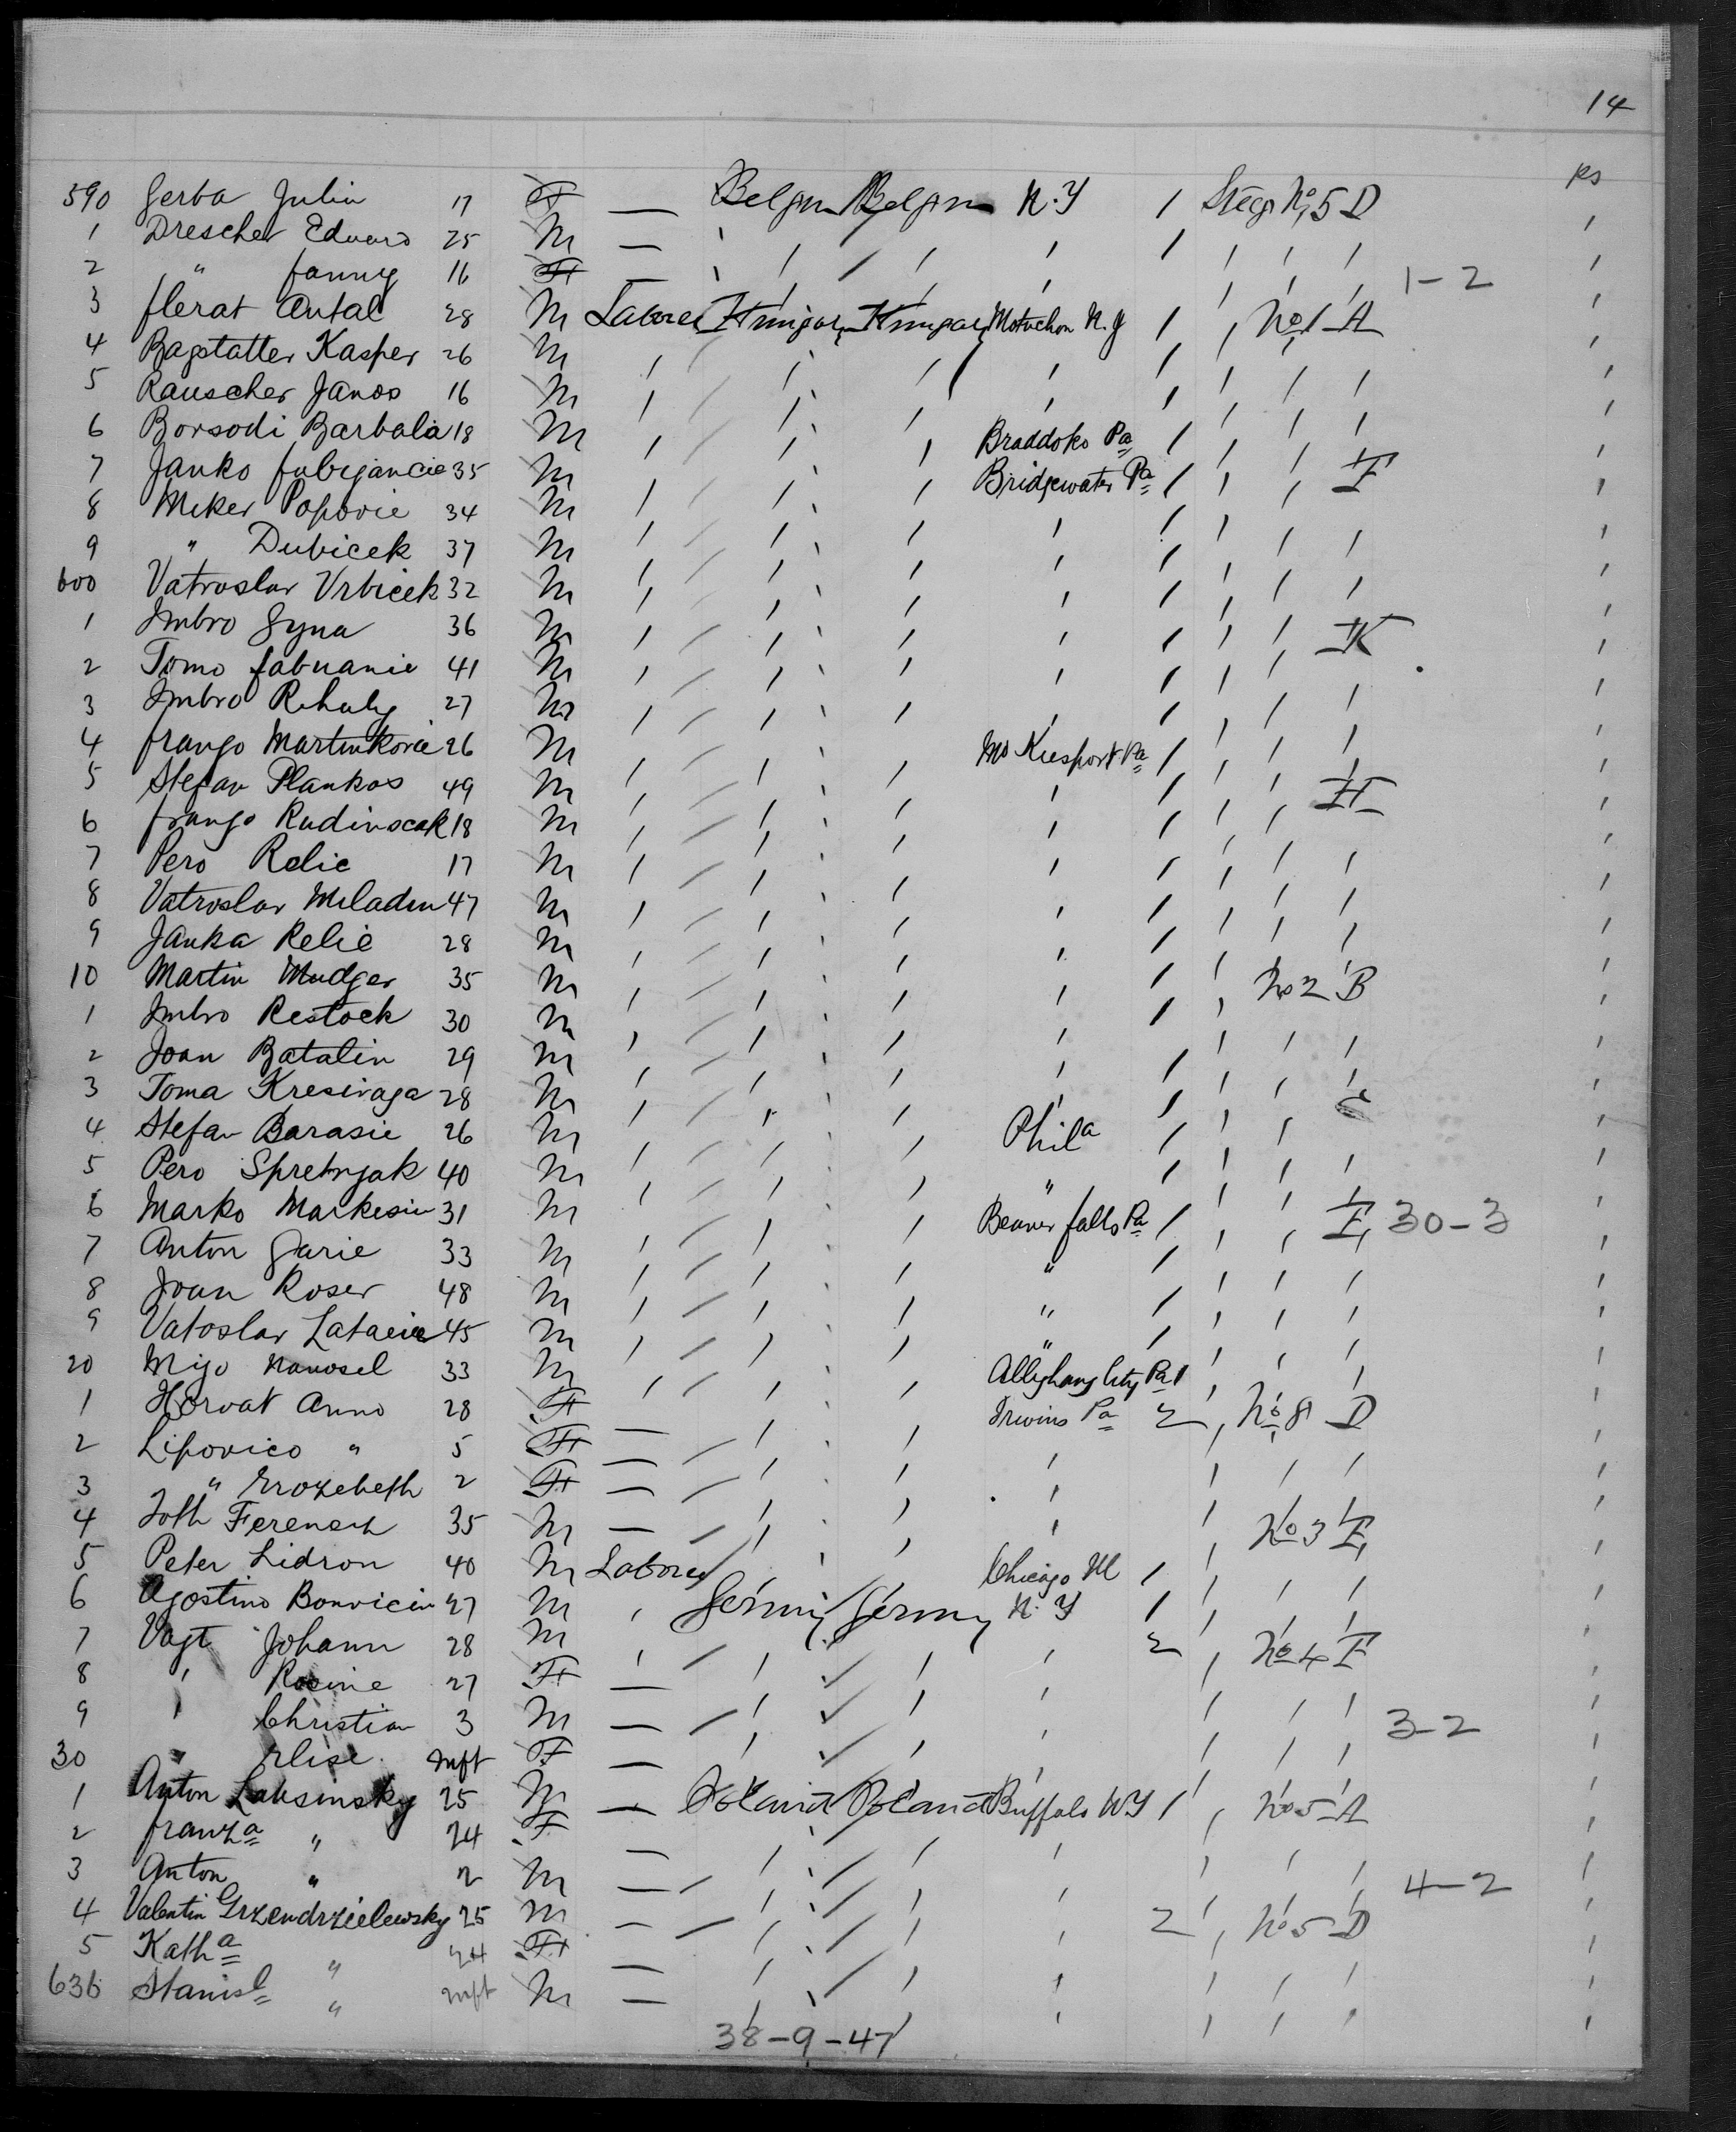 14
ps
590 Gerba Julia 17 F — Belgm Belgm N.Y 1 Steeg No 5 D
1 Drescher Eduard 25 M —
2 " Fanny 16 F —
1-2
3 Flerat Antal 28 M Laborer Hungary Hungary Metuchon N.J 1 No 1 A
4 Bagstatter Kasper 26 M
5 Rauscher Janos 16 M
6 Borsodi Barbala 18 M Braddoks Pa
7 Janko 35 M Bridgewater Pa F
8 Meker Popovic 34 M
9 " Dubicek 37 M
600 Vatroslav Vrbicek 32 M
1 Imbro Gyna 36 M K
2 Tomo 41 M
3 Imbro Rihaly 27 M
4 Frango Martinkovic 26 M Mc Kiesport Pa
5 Stefan Plankos 49 M H
6 Frango Radinscak 18 M
7 Pero Relic 17 M
8 Vatroslav Meladin 47 M
9 Janka Relic 28 M
10 Martin Mudger 35 M No 2 B
1 Imbro Restock 30 M
2 Joan Batalin 29 M
3 Toma Kresivaga 28 M
4 Stefan Barasic 26 M Phila
5 Pero Spretnjak 40 M "
6 Marko Markesin 31 M Beaver Falls Pa E 30-3
7 Anton Garic 33 M "
8 Joan Roser 48 M "
9 Vatoslav Latacic 45 M "
20 Mijo Navosel 33 M Alleghany City Pa 1
1 Horvat Anna 28 F — Irwins Pa 2 No 8 D
2 Lipovico " 5 F —
3 " Erozebeth 2 F —
4 Toth Ferensch 35 M — No 3 E
5 Peter Lidron 40 M Laborer Chicago Ill 1
6 Agostino Bonvicin 27 M Germny Germny N.Y 1
7 Vagt Johann 28 M 2 No 4 F
8 Rosine 27 F —
9 Christian 3 M — 3-2
30 " Elise Inft F —
1 Anton Labsinsky 25 M — Poland Poland Buffalo NY 1 No 5 A
2 Franza " 24 F —
3 Anton " 2 M —
4-2
4 Valentin Grzendrzielewsky 25 M — 2 No 5 D
5 Katha " 24 F —
636 Stanisl " Inft M —
38-9-47